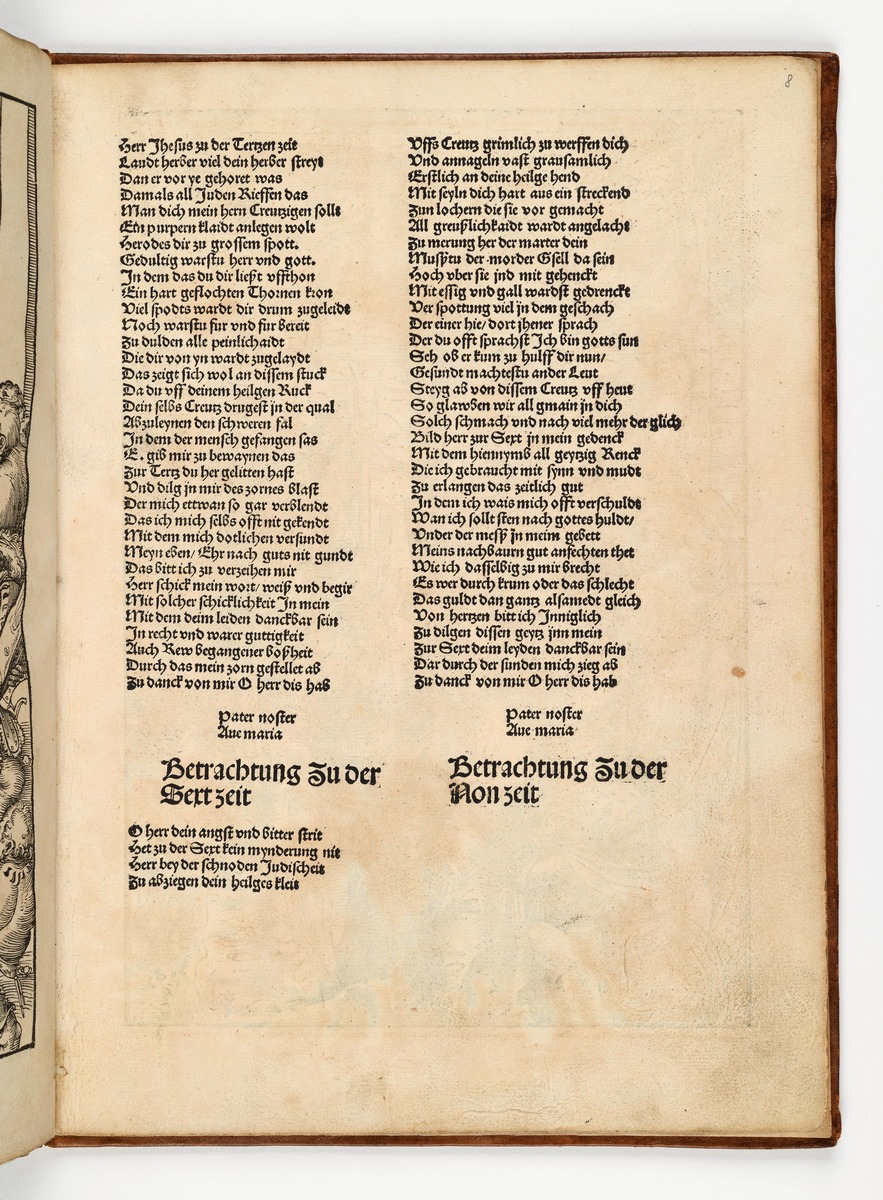 8
Herr Jhesus zu der Tertzen zeit
Laudt herber viel dein herber streyt
Dan er vor ye gehoret was
Damals all Juden Rieffen das
Man dich mein hern Creutzigen sollt
Ein purpern klaidt anlegen wolt
Herodes dir zu grossem spott.
Gedultig warstu herr vnd gott.
In dem das du dir ließt vffthon
Ein hart geflochten Thornen kron
Viel spodts wardt dir drum zugeleidt
Noch warstu fur vnd fur bereit
Zu dulden alle peinlichaidt
Die dir von yn wardt zugelaydt
Das zeigt sich wol an dissem stuck
Da du vff deinem heilgen Ruck
Dein selbs Creutz drugest in der qual
Abzuleynen den schweren fal
In dem der mensch gefangen sas
E. gib mir zu bewaynen das
Zur Tertz du her gelitten hast
Vnd dilg jn mir des zornes blast
Der mich ettwan so gar verblendt
Das ich mich selbs offt nit gekendt
Mit dem mich dotlichen versundt
Meyn eben/ Ehr nach guts nit gundt
Das bitt ich zu verzeihen mir
Herr schick mein wort/ weiß vnd begir
Mit solcher schicklichkeit In mein
Mit dem deim leiden danckbar sein
In recht vnd warer guttigkeit
Auch Rew begangener boßheit
Durch das mein zorn gestellet ab
Zu danck von mir O herr dis hab
Pater noster
Aue maria
Betrachtung Zu der
Sext zeit
O herr dein angst vnd bitter strit
Het zu der Sext kein mynderung nit
Herr bey der schnoden Judischeit
Zu abziegen dein heilges kleit
Vffs Creutz grimlich zu werffen dich
Vnd annageln vast grausamlich
Erstlich an deine heilge hend
Mit seyln dich hart aus ein streckend
Zun lochern die sie vor gemacht
All greußlichkaidt wardt angelacht
Zu merung her der marter dein
Musßtu der morder Gsell da sein
Hoch vber sie jnd mit gehenckt
Mit essig vnd gall wardst gedrenckt
Ver spottung viel in dem geschach
Der einer hie/ dort jhener sprach
Der du offt sprachst Ich bin gotts sun
Seh ob er kum zu hulff dir nun/
Gesundt machtestu ander Leut
Steyg ab von dissem Creutz vff heut
So glawben wir all gmain in dich
Solch schmach vnd nach viel mehr der glich
Bild herr zur Sext jn mein gedenck
Mit dem hiennymb all geytzig Renck
Die ich gebraucht mit synn vnd mudt
Zu erlangen das zeitlich gut
In dem ich wais mich offt verschuldt
Wan ich sollt sten nach gottes huldt/
Vnder der mesß in meim gebett
Meins nachbaurn gut anfechten thet
Wie ich dasselbig zu mir brecht
Es wer durch krum oder das schlecht
Das guldt dan gantz alsamedt gleich
Von hertzen bitt ich Inniglich
Zu dilgen dissen geytz jnn mein
Zur Sext deim leyden danckbar sein
Dar durch der sunden mich zieg ab
Zu danck von mir O herr dis hab
Pater noster
Aue maria
Betrachtung Zu der
Non zeit